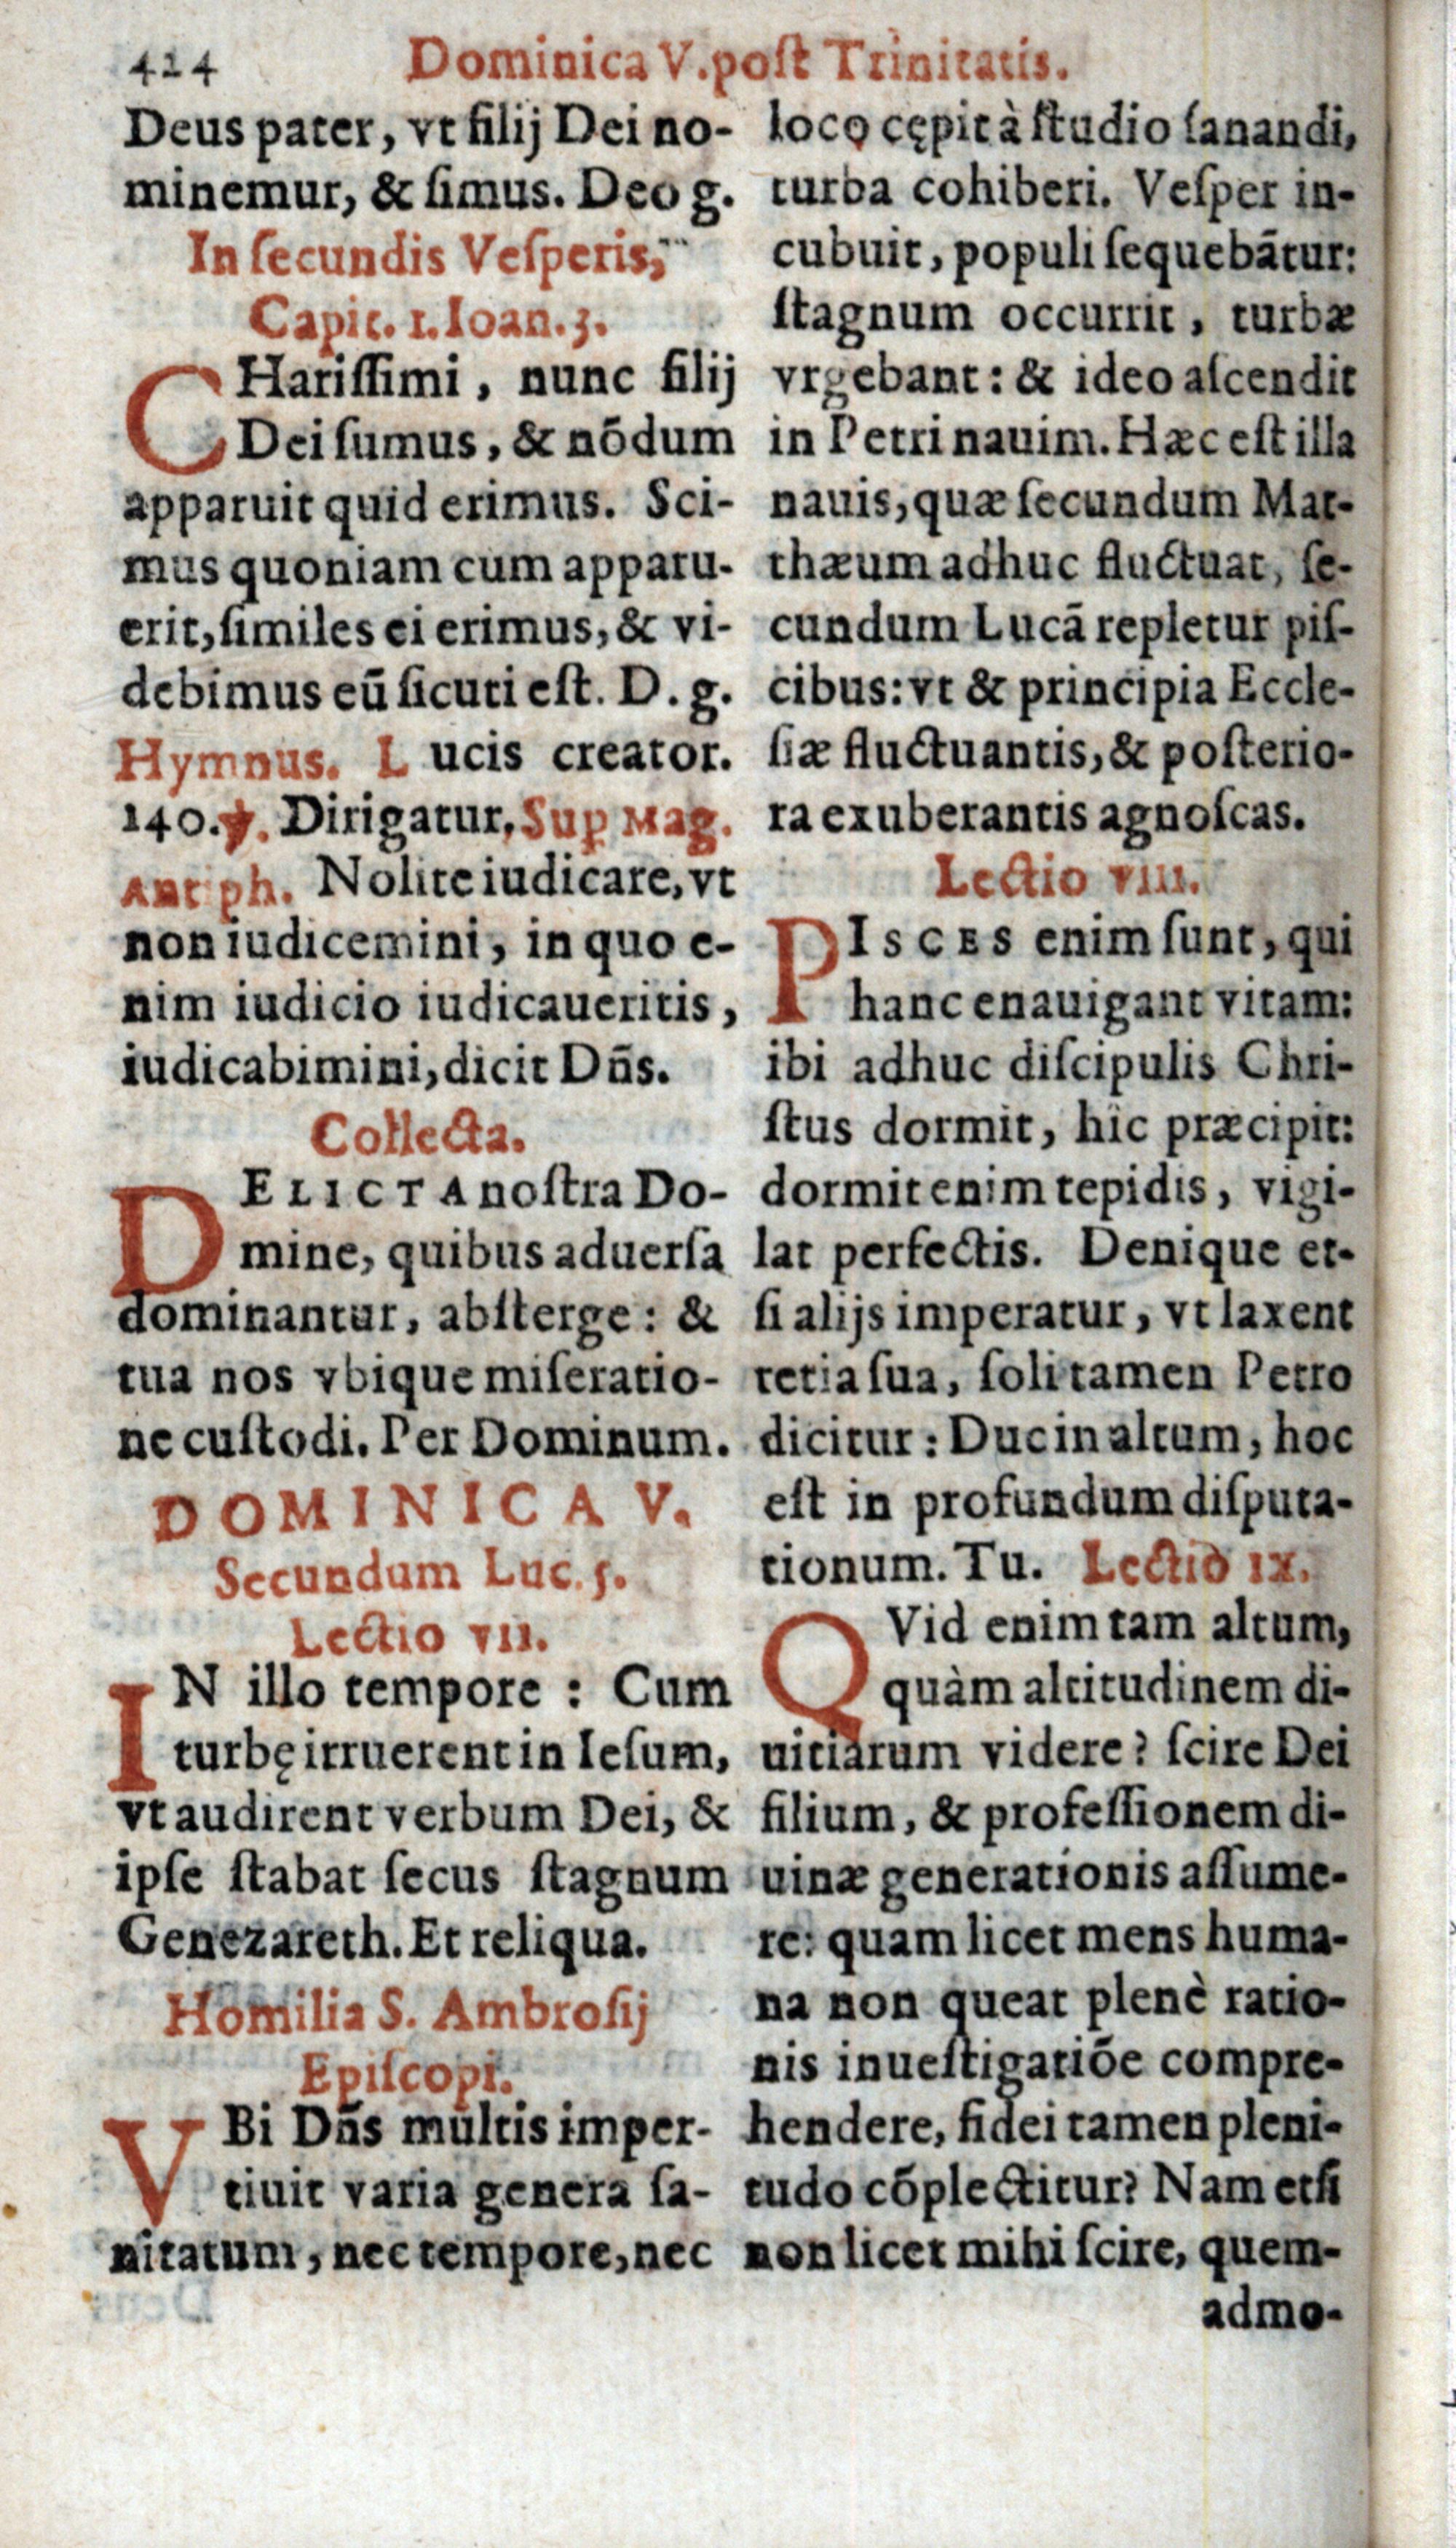 424 Dominica V. post Trinitatis.
Deus pater, vt filij Dei no-
minemur, & simus. Deo g.
In secundis Vesperis,
Capit. 1. Ioan. 3.
CHarissimi, nunc filij
Dei sumus, & nōdum
apparuit quid erimus. Sci-
mus quoniam cum apparu-
erit, similes ei erimus, & vi-
debimus eū sicuti est. D. g.
Hymnus. Lucis creator.
140. ℣. Dirigatur, Sup Mag.
Antiph. Nolite iudicare, vt
non iudicemini, in quo e-
nim iudicio iudicaueritis,
iudicabimini, dicit Dñs.
Collecta.
DELICTA nostra Do-
mine, quibus aduersa
dominantur, absterge: &
tua nos vbique miseratio-
ne custodi. Per Dominum.
DOMINICA V.
Secundum Luc. 5.
Lectio VII.
IN illo tempore: Cum
turbę irruerent in Iesum,
vt audirent verbum Dei, &
ipse stabat secus stagnum
Genezareth. Et reliqua.
Homilia S. Ambrosij
Episcopi.
VBi Dñs multis imper-
tiuit varia genera sa-
nitatum, nec tempore, nec
loco cępit à studio sanandi,
turba cohiberi. Vesper in-
cubuit, populi sequebātur:
stagnum occurrit, turbæ
vrgebant: & ideo ascendit
in Petri nauim. Hæc est illa
nauis, quæ secundum Mat-
thæum adhuc fluctuat, se-
cundum Lucā repletur pis-
cibus: vt & principia Eccle-
siæ fluctuantis, & posterio-
ra exuberantis agnoscas.
Lectio VIII.
PISCES enim sunt, qui
hanc enauigant vitam:
ibi adhuc discipulis Chri-
stus dormit, hic præcipit:
dormit enim tepidis, vigi-
lat perfectis. Denique et-
si alijs imperatur, vt laxent
retia sua, soli tamen Petro
dicitur: Duc in altum, hoc
est in profundum disputa-
tionum. Tu. Lectio IX.
QVid enim tam altum,
quàm altitudinem di-
uitiarum videre? scire Dei
filium, & professionem di-
uinæ generationis assume-
re: quam licet mens huma-
na non queat plenè ratio-
nis inuestigatiōe compre-
hendere, fidei tamen pleni-
tudo cōplectitur? Nam etsi
non licet mihi scire, quem-
admo-